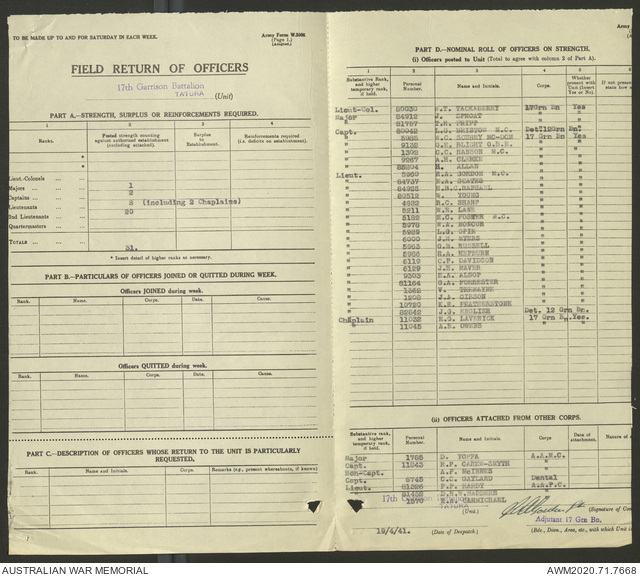 TO BE MADE UP TO AND FOR SATURDAY IN EACH WEEK.
Army Form W.3008.
(Page 1.)
(Adapted.)
FIELD RETURN OF OFFICERS
17th Garrison Battalion
TATURA (Unit)
PART A.—STRENGTH, SURPLUS OR REINFORCEMENTS REQUIRED.
1 2 3 4
Ranks. Posted strength counting against authorized establishment (including attached). Surplus to Establishment. Reinforcements required (i.e. deficits on establishment).
*
*
Lieut.-Colonels
Majors 1
Captains 2
Lieutenants 8 (including 2 Chaplains)
2nd Lieutenants 20
Quartermasters
TOTALS 31.
* Insert detail of higher ranks as necessary.
PART B.—PARTICULARS OF OFFICERS JOINED OR QUITTED DURING WEEK.
Officers JOINED during week.
Rank. Name. Corps. Date. Cause.
Officers QUITTED during week.
Rank. Name. Corps. Date. Cause.
PART C.—DESCRIPTION OF OFFICERS WHOSE RETURN TO THE UNIT IS PARTICULARLY REQUESTED.
Rank. Name and Initials. Corps. Remarks (e.g., present whereabouts, if known)
Army
(A
PART D.—NOMINAL ROLL OF OFFICERS ON STRENGTH.
(i) Officers posted to Unit (Total to agree with column 2 of Part A).
1 2 3 4 5
Substantive Rank, and higher temporary rank, if held. Personal Number. Name and Initials. Corps. Whether present with Unit (Insert Yes or No). If not present state how
Lieut-Col. TACKABERRY 17Grn Bn Yes
Major 84912 J. SPROAT " "
" 81757 PHIPP " "
Capt. 80042 L.G. BRISTOW M.C. Det?12Grn Bn?
" 5985 17 Grn Bn Yes
" 9132 BLIGHT " "
" 1302 C.C. HANSON M.C. " "
" 9267 A.H. CLARKE " "
" 85204 H. ALLAN " "
Lieut. 5950 GORDON M.C. " "
" 84737 COATES " "
" 84925 RAPHAEL " "
" 80512 W. YOUNG " "
" 4632 R.C. SHARP " "
" 5211 W.R. LANE " "
" 5122 FOSTER " "
" 5978 RONCUR " "
" 5989 L.G. OPIE " "
" 6000 J.H. MYERS " "
" 5963 G.H. RUSSELL " "
" 5988 HEPBURN " "
" 6119 C.P. DAVIDSON " "
" 6129 J.H. HAVER " "
" 9303 ALSOP " "
" 81164 G.A. FORRESTER " "
" 1362 V. TREGAYNE " "
" 1208 J.A. GIBSON " "
" 10720 FEATHERSTONE " "
" 82642 J.G. ENGLISH Det. 12 Grn Bn.
Chaplain 11032 H.G. LAVERICK 17 Grn Bn. Yes.
" 11045 A.B. OWENS " "
(ii) OFFICERS ATTACHED FROM OTHER CORPS.
Substantive rank, and higher temporary rank, if held. Personal Number. Name and Initials. Corps Date of attachment. Nature of
Major 1785 D. TOPPA A.A.M.C.
Capt. 11843 CAREW-SMYTH "
Hon-Capt. A.F. McINNES "
Capt. 8745 C.C. GAYLARD Dental
Lieut. 81326 F.F. HARDY A.A.P.C.
" 81482
CARMICHAEL
17th Garrison
TATURA
(Unit.)
(Signature of Com
Adjutant 17 Grn Bn.
19/4/41. (Date of Despatch.)
(Bde., Divn., Area, etc., with which Unit is
AUSTRALIAN WAR MEMORIAL
AWM2020.71.7668